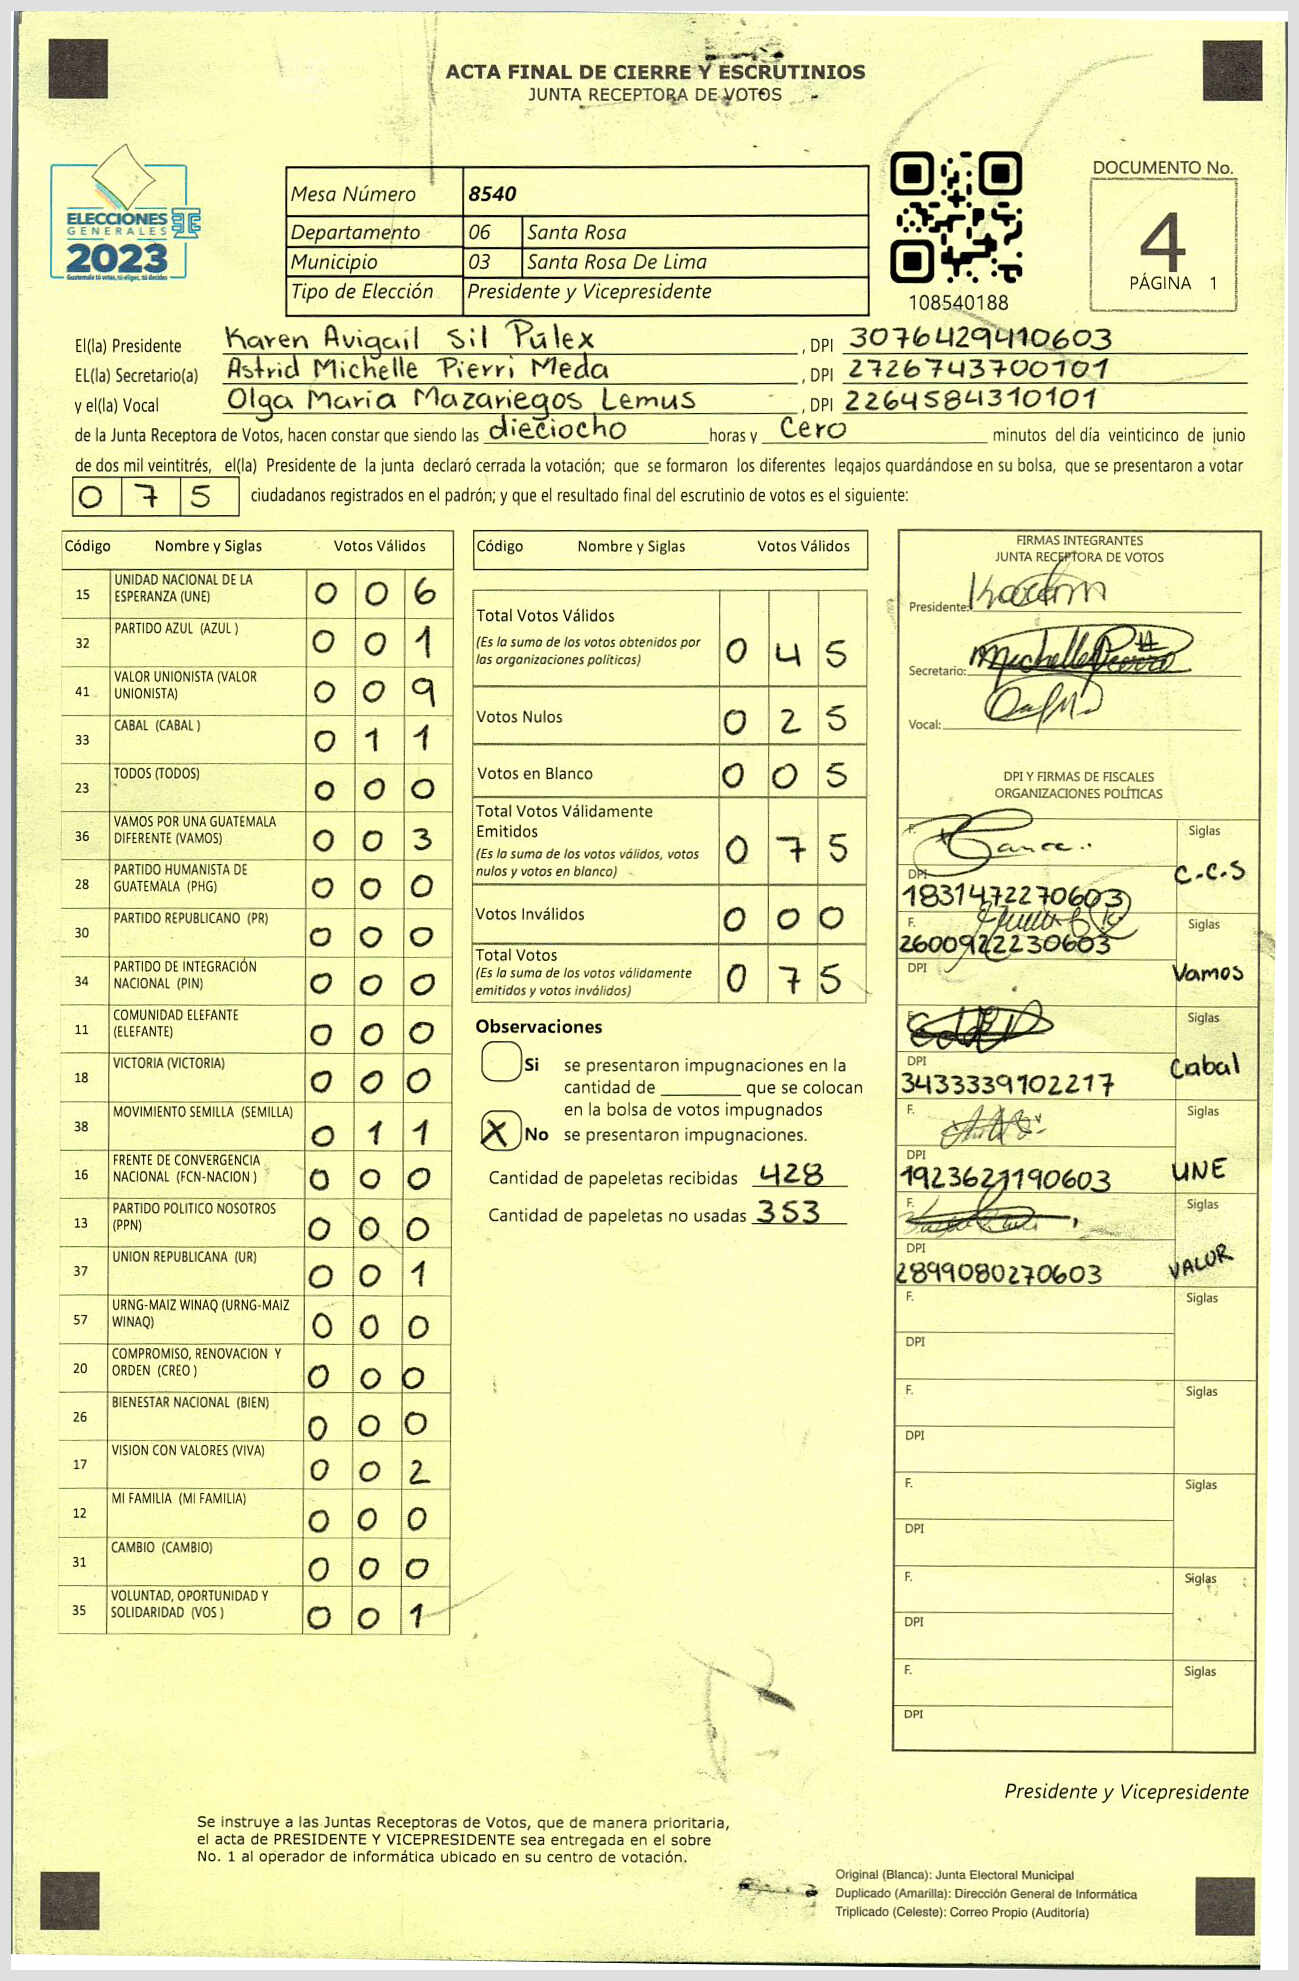 ACTA FINAL DE CIERRE Y ESCRUTINIOS
JUNTA RECEPTORA DE VOTOS
ELECCIONES
GENERALES
2023
Guatemala tú votas, tú eliges, tú decides
Mesa Número 8540
Departamento 06 Santa Rosa
Municipio 03 Santa Rosa De Lima
Tipo de Elección Presidente y Vicepresidente
108540188
DOCUMENTO No.
4
PÁGINA 1
El(la) Presidente Karen Avigail Sil Púlex , DPI 3076429410603
EL(la) Secretario(a) Astrid Michelle Pierri Meda , DPI 2726743700101
y el(la) Vocal Olga Maria Mazariegos Lemus , DPI 2264584310101
de la Junta Receptora de Votos, hacen constar que siendo las dieciocho horas y Cero minutos del día veinticinco de junio
de dos mil veintitrés, el(la) Presidente de la junta declaró cerrada la votación; que se formaron los diferentes legajos guardándose en su bolsa, que se presentaron a votar
0 7 5 ciudadanos registrados en el padrón; y que el resultado final del escrutinio de votos es el siguiente:
Código Nombre y Siglas Votos Válidos
15 UNIDAD NACIONAL DE LA ESPERANZA (UNE) 0 0 6
32 PARTIDO AZUL (AZUL ) 0 0 1
41 VALOR UNIONISTA (VALOR UNIONISTA) 0 0 9
33 CABAL (CABAL ) 0 1 1
23 TODOS (TODOS) 0 0 0
36 VAMOS POR UNA GUATEMALA DIFERENTE (VAMOS) 0 0 3
28 PARTIDO HUMANISTA DE GUATEMALA (PHG) 0 0 0
30 PARTIDO REPUBLICANO (PR) 0 0 0
34 PARTIDO DE INTEGRACIÓN NACIONAL (PIN) 0 0 0
11 COMUNIDAD ELEFANTE (ELEFANTE) 0 0 0
18 VICTORIA (VICTORIA) 0 0 0
38 MOVIMIENTO SEMILLA (SEMILLA) 0 1 1
16 FRENTE DE CONVERGENCIA NACIONAL (FCN-NACION ) 0 0 0
13 PARTIDO POLITICO NOSOTROS (PPN) 0 0 0
37 UNION REPUBLICANA (UR) 0 0 1
57 URNG-MAIZ WINAQ (URNG-MAIZ WINAQ) 0 0 0
20 COMPROMISO, RENOVACION Y ORDEN (CREO ) 0 0 0
26 BIENESTAR NACIONAL (BIEN) 0 0 0
17 VISION CON VALORES (VIVA) 0 0 2
12 MI FAMILIA (MI FAMILIA) 0 0 0
31 CAMBIO (CAMBIO) 0 0 0
35 VOLUNTAD, OPORTUNIDAD Y SOLIDARIDAD (VOS ) 0 0 1
Código Nombre y Siglas Votos Válidos
Total Votos Válidos 0 4 5
(Es la suma de los votos obtenidos por
las organizaciones políticas)
Votos Nulos 0 2 5
Votos en Blanco 0 0 5
Total Votos Válidamente
Emitidos 0 7 5
(Es la suma de los votos válidos, votos
nulos y votos en blanco)
Votos Inválidos 0 0 0
Total Votos 0 7 5
(Es la suma de los votos válidamente
emitidos y votos inválidos)
Observaciones
Si se presentaron impugnaciones en la
cantidad de ________ que se colocan
en la bolsa de votos impugnados
X No se presentaron impugnaciones.
Cantidad de papeletas recibidas 428
Cantidad de papeletas no usadas 353
FIRMAS INTEGRANTES
JUNTA RECEPTORA DE VOTOS
Presidente:
Secretario:
Vocal:
DPI Y FIRMAS DE FISCALES
ORGANIZACIONES POLÍTICAS
F. Siglas
DPI C.C.S
1831472270603
F. Siglas
2600922230603
DPI Vamos
F. Siglas
DPI Cabal
3433339102217
F. Siglas
DPI UNE
1923621190603
F. Siglas
DPI VALOR
2899080270603
F. Siglas
DPI
F. Siglas
DPI
F. Siglas
DPI
F. Siglas
DPI
F. Siglas
DPI
Presidente y Vicepresidente
Se instruye a las Juntas Receptoras de Votos, que de manera prioritaria,
el acta de PRESIDENTE Y VICEPRESIDENTE sea entregada en el sobre
No. 1 al operador de informática ubicado en su centro de votación.
Original (Blanca): Junta Electoral Municipal
Duplicado (Amarilla): Dirección General de Informática
Triplicado (Celeste): Correo Propio (Auditoría)